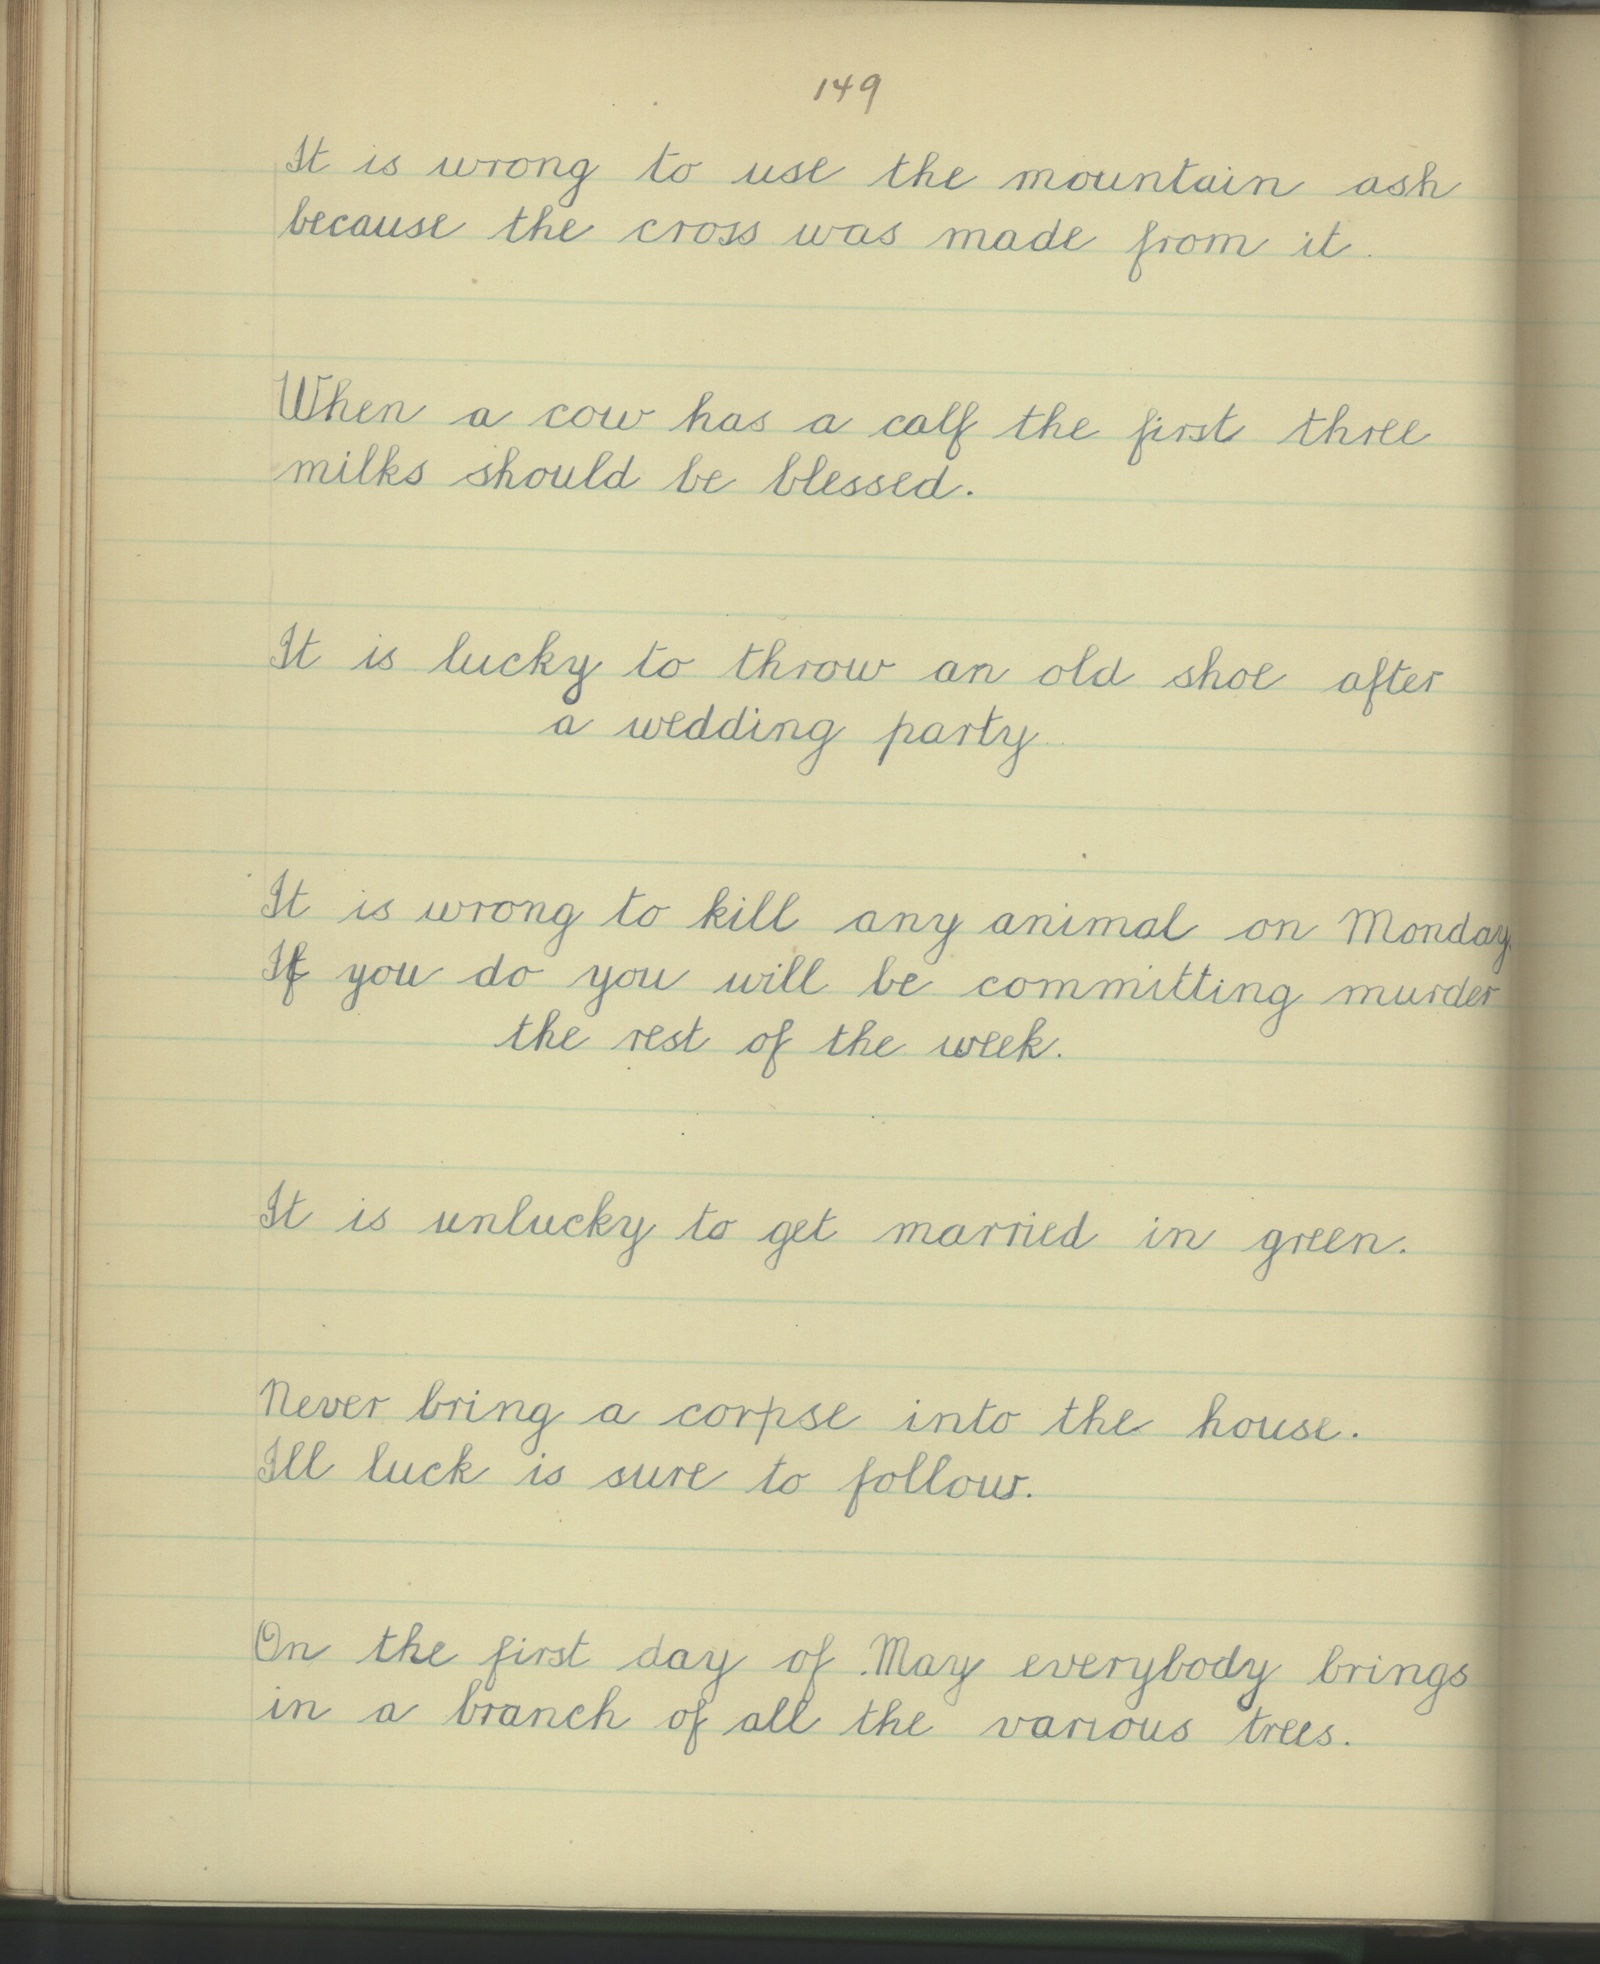 149
It is wrong to use the mountain ash
because the cross was made from it.
When a cow has a calf the first three
milks should be blessed.
It is lucky to throw an old shoe after
a wedding party.
It is wrong to kill any animal on Monday.
If you do you will be committing murder
the rest of the week.
It is unlucky to get married in green.
Never bring a corpse into the house.
Ill luck is sure to follow.
On the first day of May everybody brings
in a branch of all the various trees.